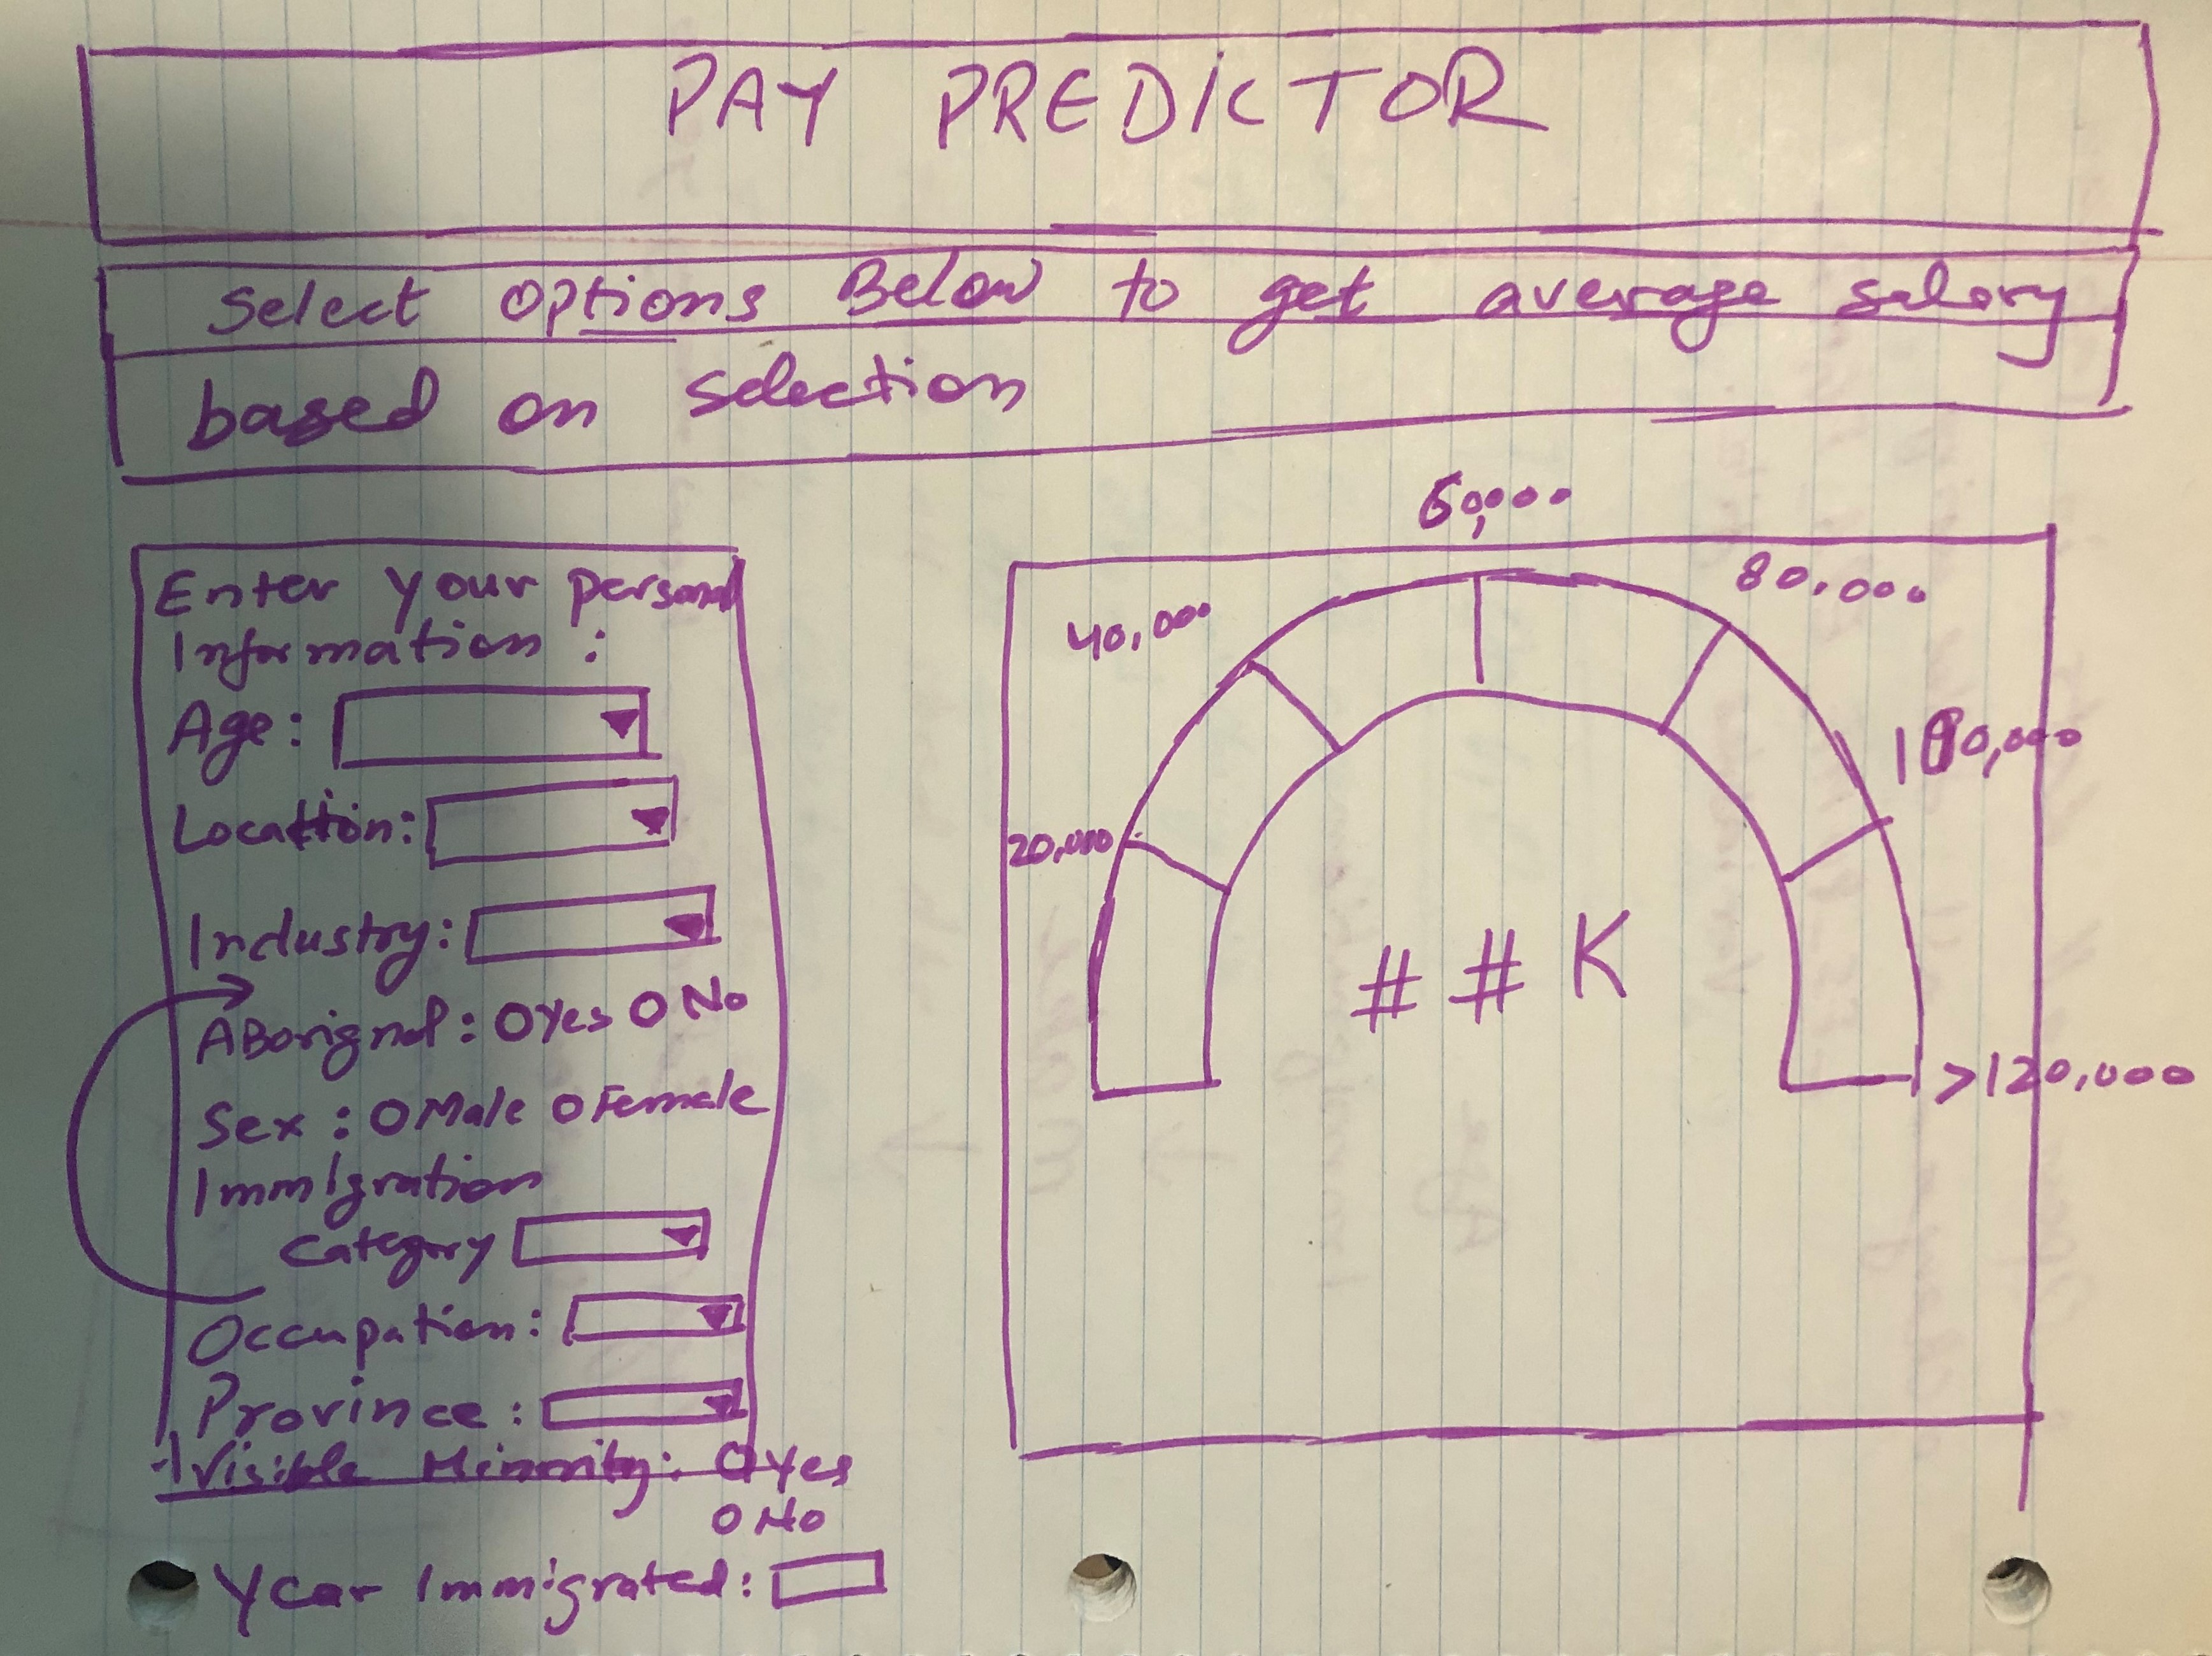 PAY PREDICTOR
Select options Below to get average salary
based on selection
Enter your personal
Information :
Age:
Location:
Industry:
ABorignal : Yes No
Sex : Male Female
Immigration
Category
Occupation:
Province:
Visible Minority: Yes
No
Year Immigrated:
20,000
40,000
60,000
80,000
100,000
>120,000
# # K